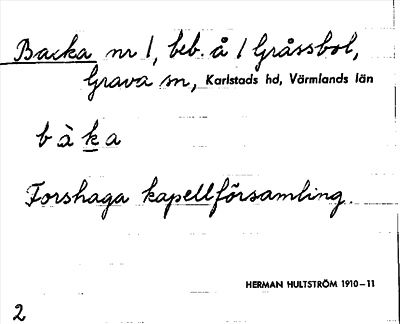 Backa nr 1, beb. å 1 Gråssbol,
Grava sn, Karlstads hd, Värmlands län
b à k a
Forshaga kapellförsamling.
HERMAN HULTSTRÖM 1910–11
2